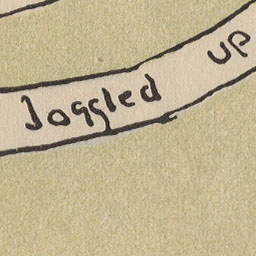 Joggled up